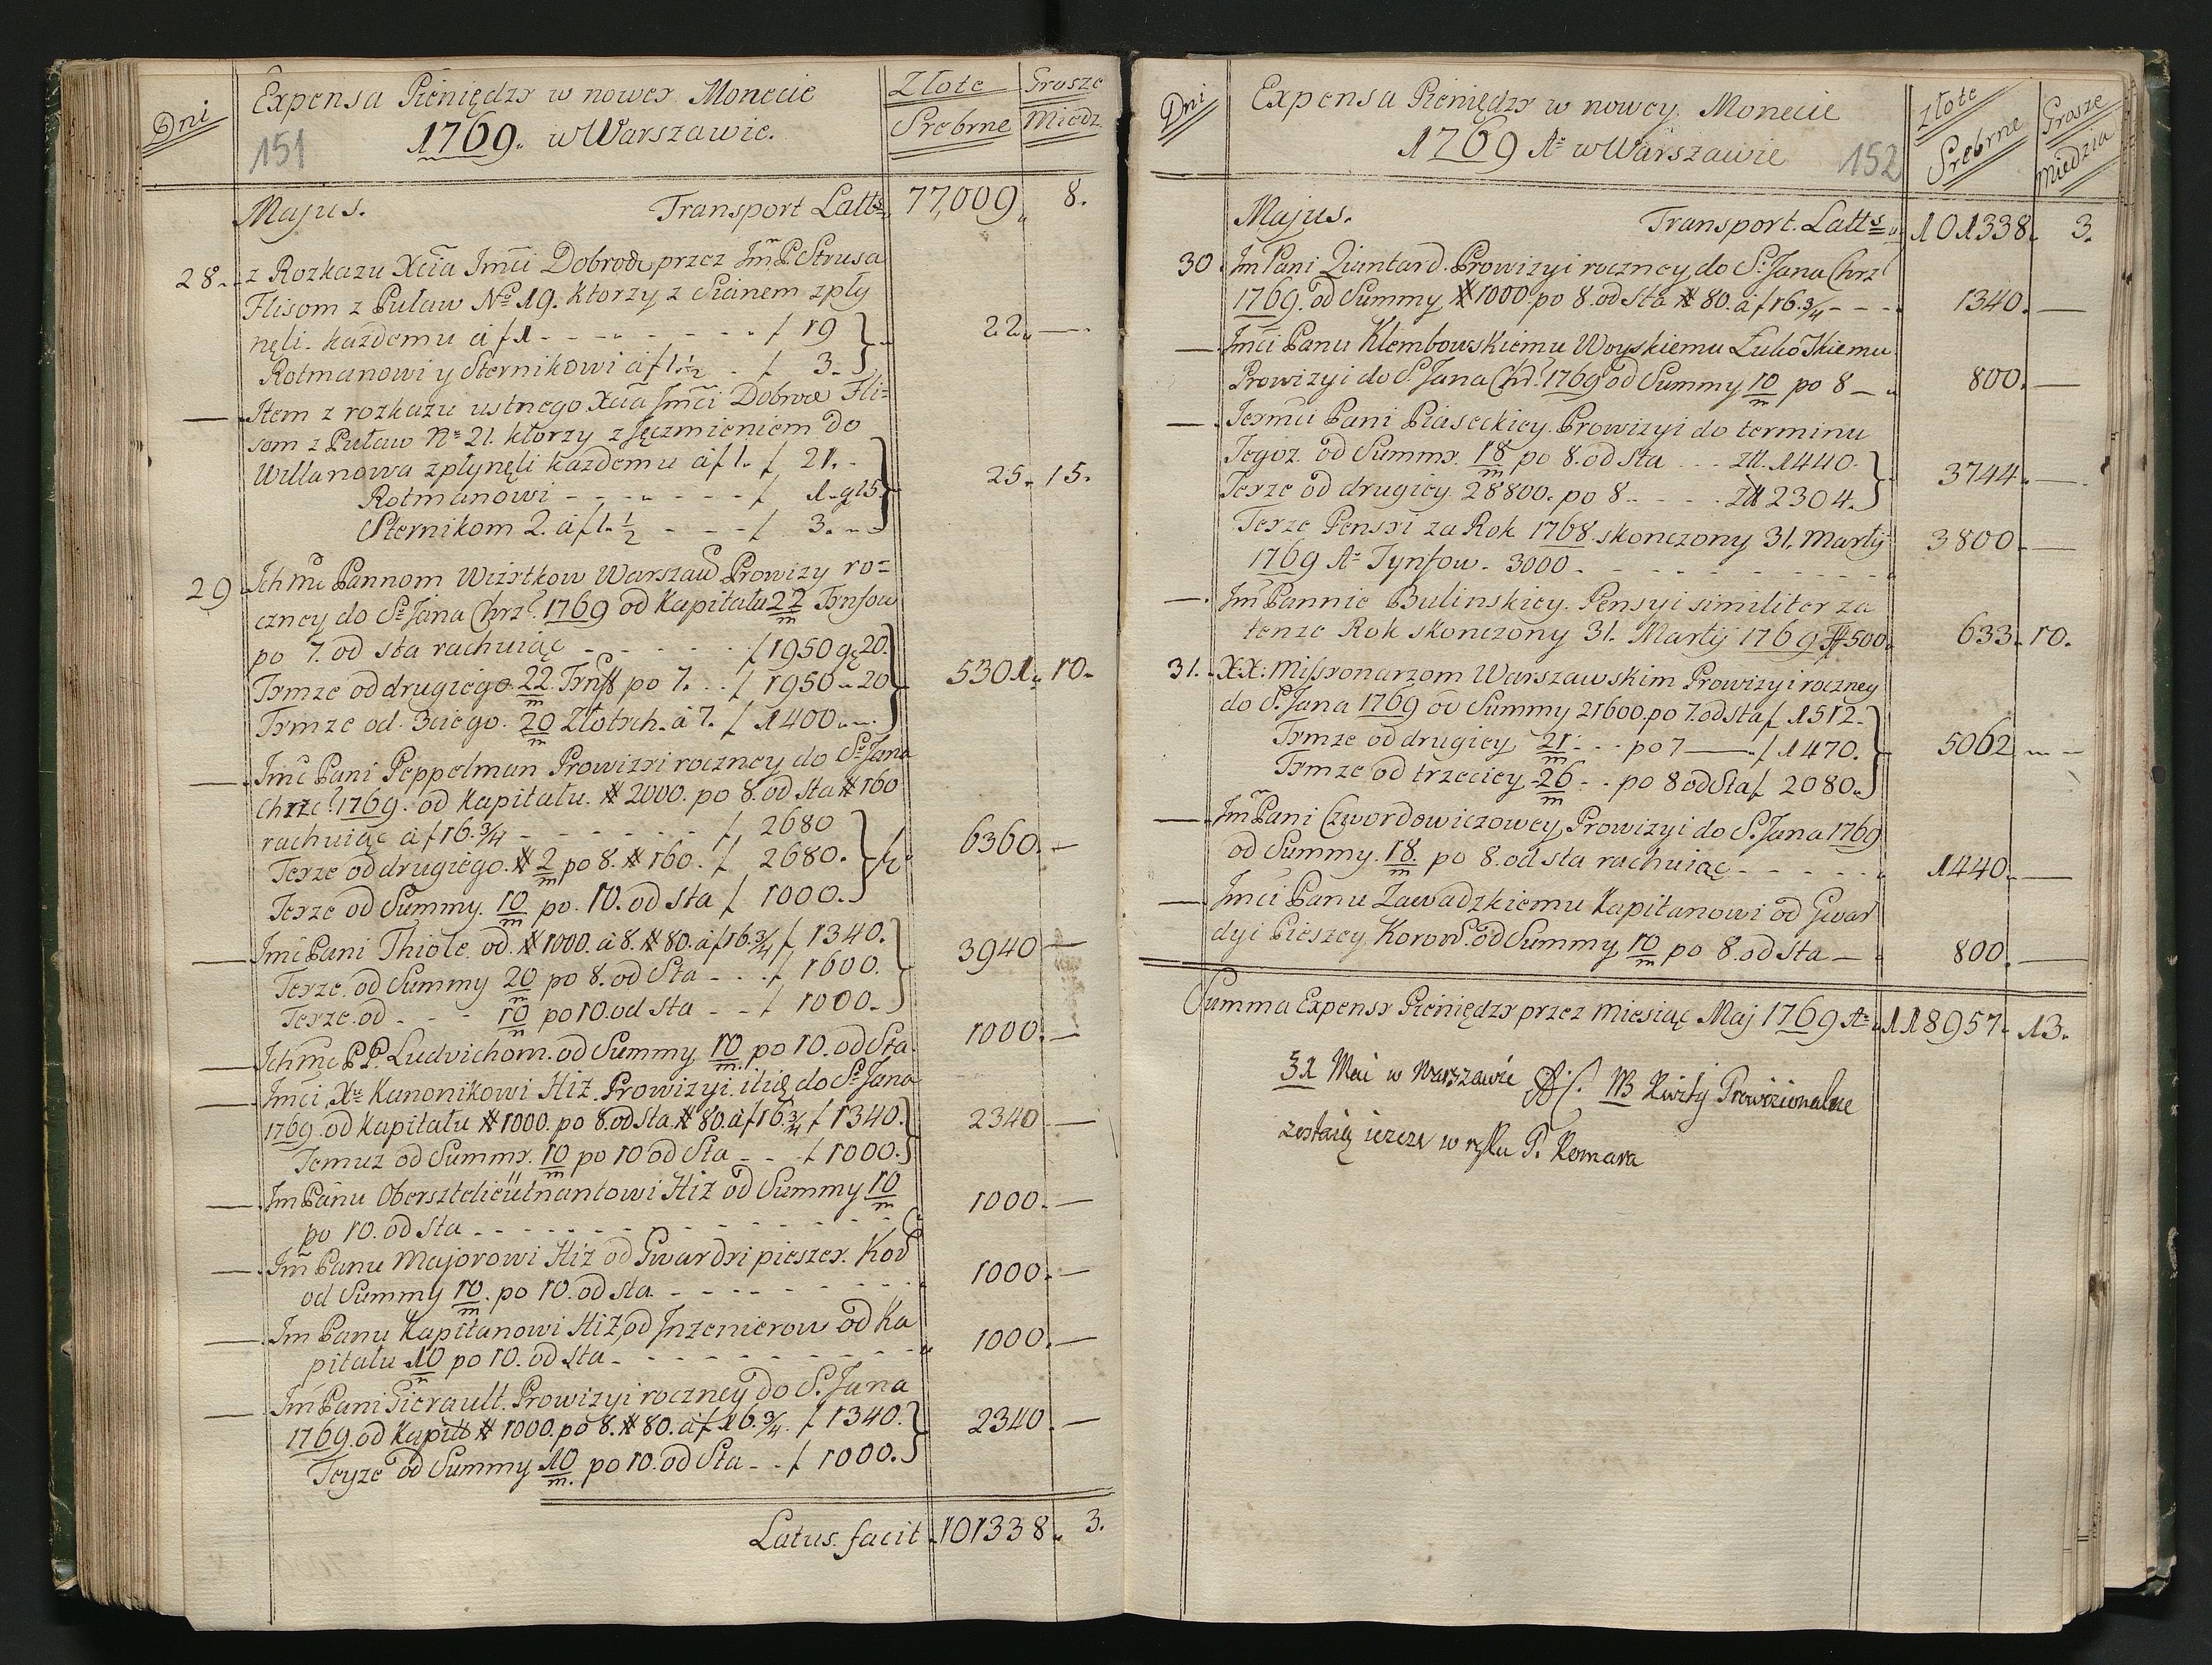 Dni
Expensa Pieniędzy w nowey Monecie
1769. w Warszawie.
Złote Srebrne
Grosze Miedz.
151
Majus. Transport Latts 77,009 8.
28. z Rozkazu Xcia Jmci Dobrod przez Jm P. Strusa
Flisom z Puław No 19. ktorzy z Sianem zpły
nęli. każdemu a f 1 - - - f 19
Rotmanowi y Sternikowi a f 1 1/2 - f 3. 22. —
— Item z rozkazu ustnego Xcia Jmci Dobrod Fli=
som z Puław No 21. ktorzy z Jęczmieniem do
Willanowa zpłynęli każdemu a f 1. f 21.
Rotmanowi - - - f 1. g 15. 25. 15.
Sternikom 2. a f 1. 1/2 - - - f 3.
29 Ichmc Pannom Wizytkow Warszaw Prowizy ro=
czney do St Jana Chrz. 1769 od Kapitału 22/m Tynfow
po 7. od sta rachuiąc - - - f 1950 g 20.
Tymze od drugiego 22/m Tynff po 7. . . f 1950 - 20 5301. 10.
Tymze od 3ciego. 20/m Złotych. a 7. f 1400
— Jmc Pani Peppelman Prowizyi roczney do St Jana
Chrzc. 1769. od Kapitału. # 2000. po 8. od Sta # 160
rachuiąc a f 16. 3/4 - - - f 2680
Teyze od drugiego. # 2/m po 8. # 160. f 2680. 6360. —
Teyze od Summy. 10/m po. 10. od sta f 1000.
— Jmc Pani Thiole. od. # 1000. a 8. # 80. a f 16. 3/4 f 1340.
Teyze. od Summy 20/m po 8. od Sta - . . f 1600. 3940 —
Teyze. od - - - 10/m po 10. od sta - - f 1000.
— Ichmc PP. Ludvichom. od Summy 10/m po 10. od Sta. 1000. —
— Jmci. Xo Kanonikowi Hiż. Prowizyi. do St Jana
1769. od Kapitału # 1000. po 8. od Sta. # 80. a f 16. 3/4 f 1340. 2340 —
Temuz od Summy. 10/m po 10 od Sta - - f 1000.
— Jm Panu Obersztelieütnantowi Hiż od Summy 10/m
po 10. od sta - - - 1000. —
— Jm Panu Majorowi Hiż od Gwardyi pieszey. Kor
od Summy 10/m. po 10. od sta. - - - 1000. —
— Jm Panu Kapitanowi Hiż, od Jnzenierow od Ka
pitału 10/m po 10. od sta - - - 1000. —
— Jm Pani Gierault. Prowizyi roczney do S. Jana
1769. od Kapitt # 1000. po 8. # 80. a f 16. 3/4. f 1340. 2340. —
Teyze od Summy 10/m. po 10. od Sta - . f 1000.
Latus. facit. 101338. 3.
Dni
Expensa Pieniędzy w nowey Monecie
1769 Ao w Warszawie
Złote Srebrne
Grosze Miedzia
152
Majus. Transport. Latts 101338. 3.
30. Jm Pani Quntard. Prowizyi roczney do S. Jana Chrz
1769. od Summy # 1000. po 8. od Sta # 80. a f 16. 3/4 - - - 1340. —
— Jmci Panu Klembowskiemu Woyskiemu Łuko Skiemu.
Prowizyi do S. Jana Chr. 1769 od Summy 10/m po 8 — 800. —
— Jeymci Pani Piaseckiey. Prowizyi do terminu
Tegoz. od Summy. 18/m po 8. od sta . . . zll. 1440.
Teyze od drugiey. 28800. po 8. - - - zll 2304. 3744. —
Teyze Pensyi za Rok 1768. skonczony 31. Martÿ
1769 Ao Tynfow. 3000 - - - 3800. —
— Jm Pannie Bulinskiey. Pensyi similiter za
tenze Rok skonczony 31. Martÿ 1769 Tf 500. 633. 10.
31. XX: Missyonarzom Warszawskim Prowizyi roczney
do S. Jana 1769 od Summy 21600. po 7. od sta f 1512.
Tymze od drugiey 21/m - - po 7 — f 1470. 5062 —
Tymze od trzeciey 26/m - - po 8 od Sta f 2080.
— Jm Pani Czwordowiczowey Prowizyi do S. Jana 1769
od Summy. 18./m po 8. od sta rachuiąc - - - 1440. —
— Jmci Panu Zawadzkiemu Kapitanowi od Gwar
dyi Pieszey Koron. od Summy 10/m po 8. od Sta — 800. —
Summa Expensy Pieniędzy przez miesiąc Maj 1769 Ao 118957. 13.
31 Mai w Warszawie NB Kwity Prowizionalne
zostaią ieszcze w ręku P. Komara